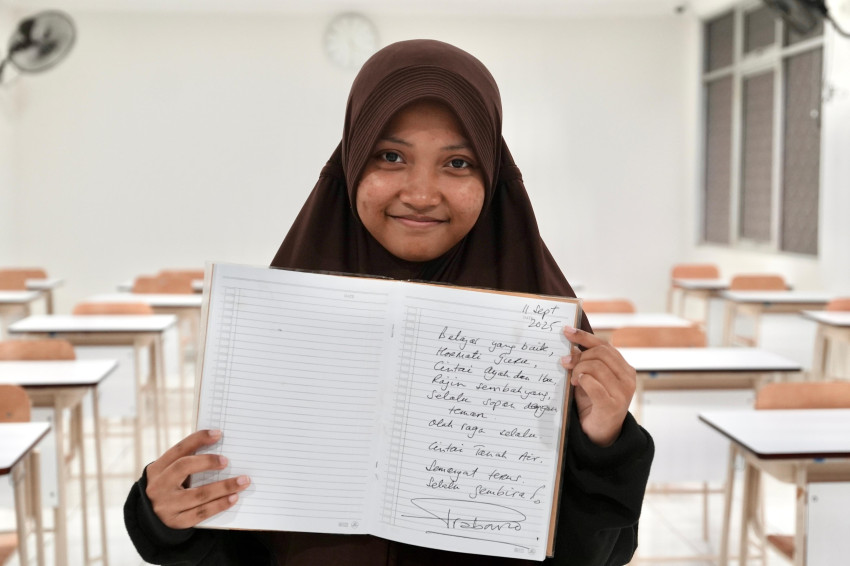 11 Sept
2025
Belajar yang baik,
Hormati Guru,
Cintai Ayah dan Ibu
Rajin sembahyang,
Selalu sopan dengan
teman
Olah raga selalu
Cintai Tanah Air.
Semangat terus
Selalu gembira!
Prabowo